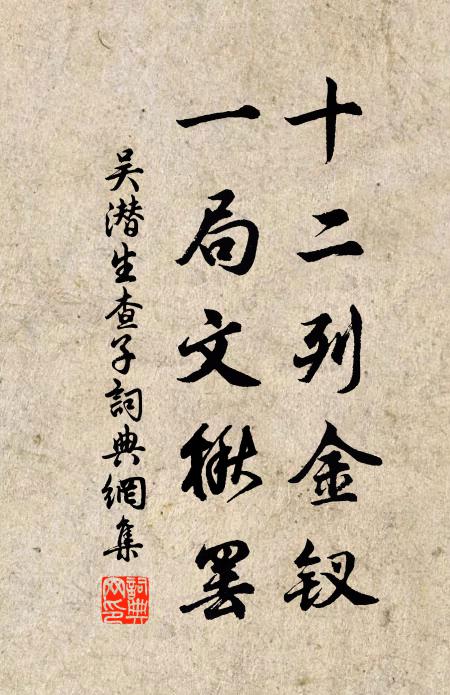 十二列金钗
一局文楸罢
吴潜生查子詞典網集
詞典
网印